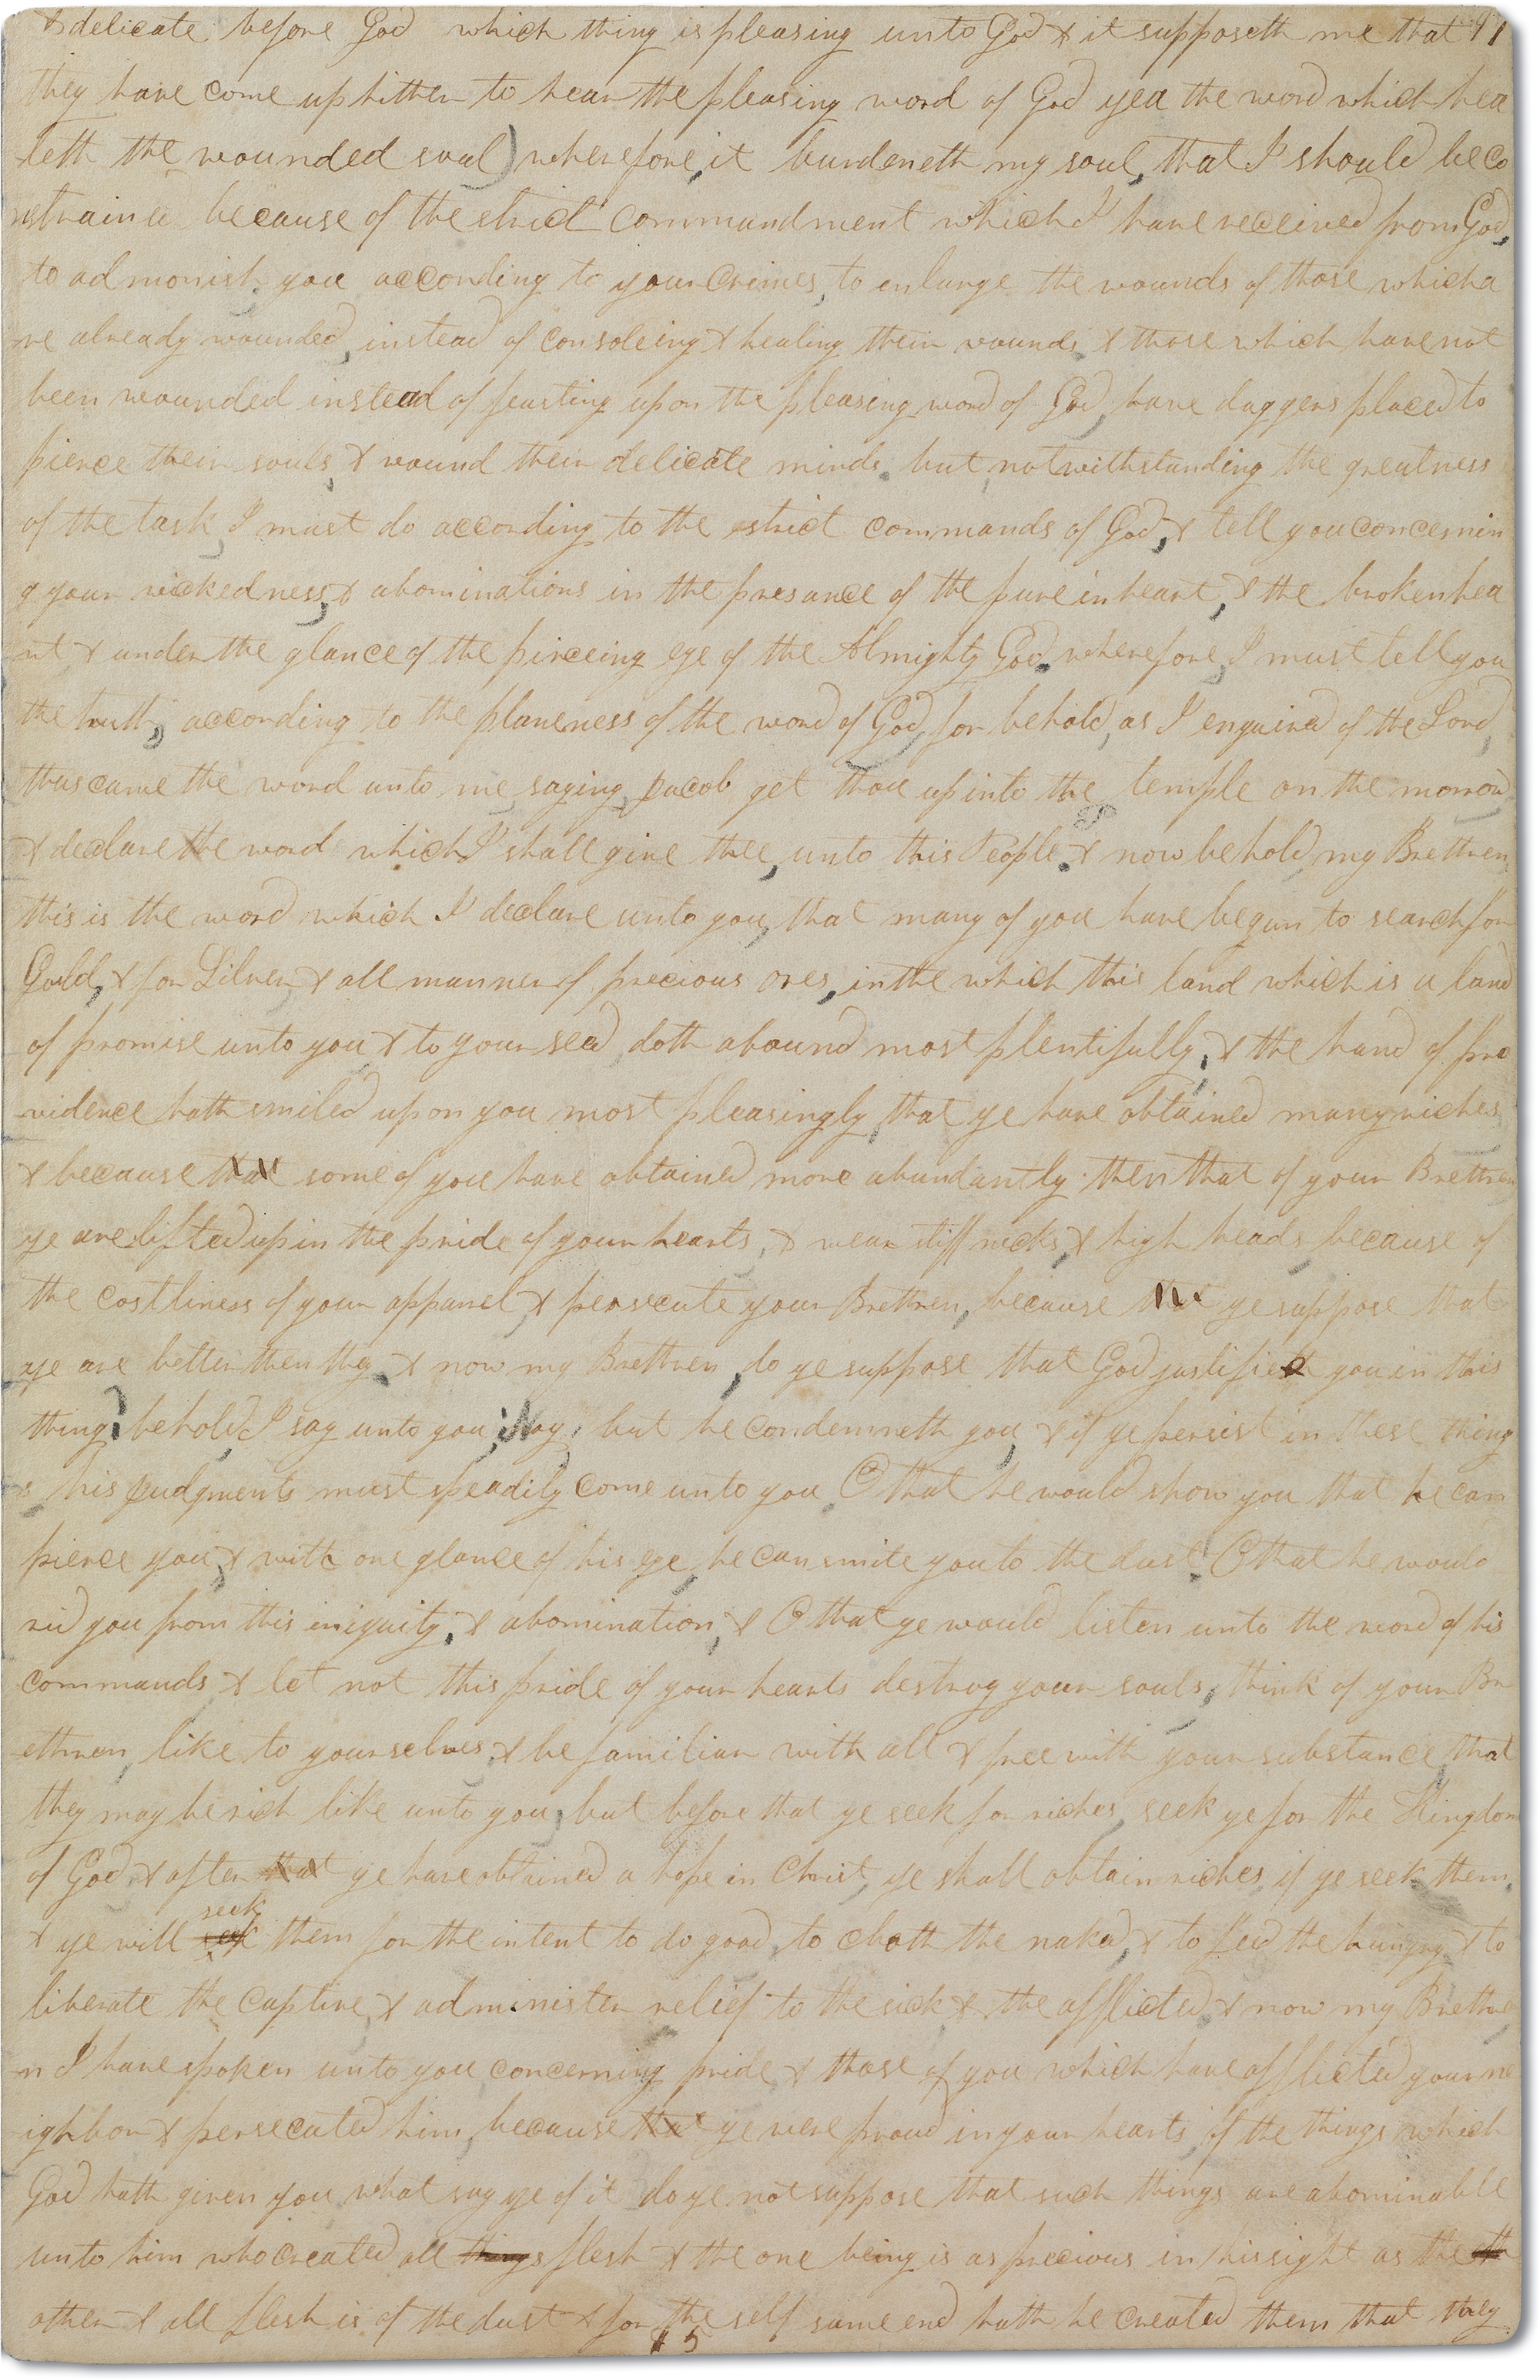 & delicate before God which thing is pleasing unto God & it supposeth me that 91
they have come up hither to hear the pleasing word of God yea the word which hea
leth the wounded soul) wherefore, it burdeneth my soul, that I should be co
nstraind because of the strict commandment which I have received from God,
to admonish you according to your crimes, to enlarge the wounds of those which a
re already wounded, instead of consoleing & healing their wounds, & those which have not
been wounded instead of feasting upon the pleasing word of God, have daggers placed to
pierce their souls, & wound their delicate minds. but, notwithstanding the greatness
of the task, I must do according to the strict commands of God, & tell you concernin
g your wickedness, & abominations in the presance of the pure in heart, & the broken hea
rt & under the glance of the pirceing eye of the Almighty God. wherefore, I must tell you
the truth, according to the planeness of the word of God, for behold, as I enquired of the Lord,
thus came the word unto me saying, Jacob get thou up into the temple on the morrow
& declare the word which I shall give thee, unto this People. & now behold, my Brethren
this is the word which I declare unto you, that many of you have began to search for
Gold, & for Silver, & all manner of precious ores, in the which this land which is a land
of promise unto you & to your seed, doth abound most plentifully, & the hand of pro
vidence hath smiled upon you most pleasingly, that ye have obtained many riches
& because that some of you have obtained more abundantly then that of your Brethren
ye are lifted up in the pride of your hearts, & wear stiff necks, & high heads, because of
the costliness of your apparel, & persecute your Brethren, because that ye suppose that
ye are better then they. & now my Brethren, do ye suppose that God justifieth you in this
thing? behold, I say unto you; Nay, but he condemneth you, & if ye persist in these thing
s his Judgments must speadily come unto you O that he would show you that he can
pierce you, & with one glance of his eye, he can smite you to the dust! O that he would
rid you from this iniquity, & abomination, & O that ye would listen unto the word of his
commands & let not this pride of your hearts destroy your souls, think of your Br
ethren, like to yourselves, & be familiar with all & free with your substance, that
they may be rich like unto you, but before that ye seek for riches, seek ye for the Kingdom
of God, & after that ye have obtained a hope in Christ, ye shall obtain riches, if ye seek them,
seek
& ye will seek them for the intent to do good, to cloath the naked, & to feed the hungry & to
liberate the captive, & administer relief to the sick & the afflicted & now my Brethre
n I have spoken unto you concerning pride & those of you which have afflicted your ne
ighbor & persecuted him, because that ye were proud in your hearts, of the things which
God hath given you, what say ye of it do ye not suppose that such things are abominable
unto him who created all things flesh & the one being is as precious in his sight as the oth
other & all flesh is of the dust & for the self same end hath he created them that they
5